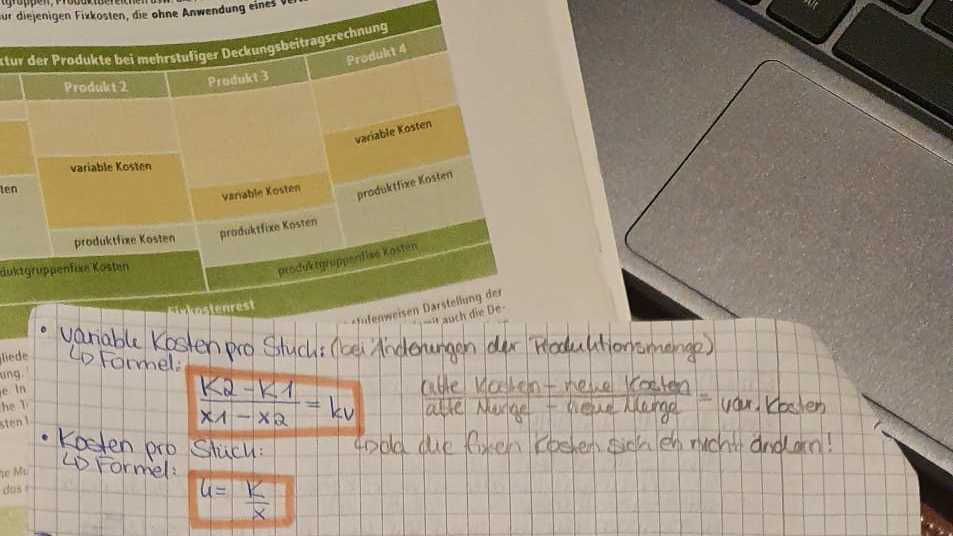 ur diejenigen Fixkosten, die ohne Anwendung eines
ktur der Produkte bei mehrstufiger Deckungsbeitragsrechnung
Produkt 2
Produkt 3
Produkt 4
variable Kosten
variable Kosten
variable Kosten
ten
produktfixe Kosten
produktfixe Kosten
produktfixe Kosten
duktgruppenfixe Kosten
produktgruppenfixe Kosten
Fixkostenrest
stufenweisen Darstellung der
mit auch die De-
• variable Kosten pro Stück: (bei Änderungen der Produktionsmenge)
↳ Formel:
K2 - K1 / x1 - x2 = kv
alte Kosten - neue Kosten / alte Menge - neue Menge = var. Kosten
• Kosten pro Stück:
↳ da die fixen Kosten sich eh nicht ändern!
↳ Formel:
u = K / x
Alt